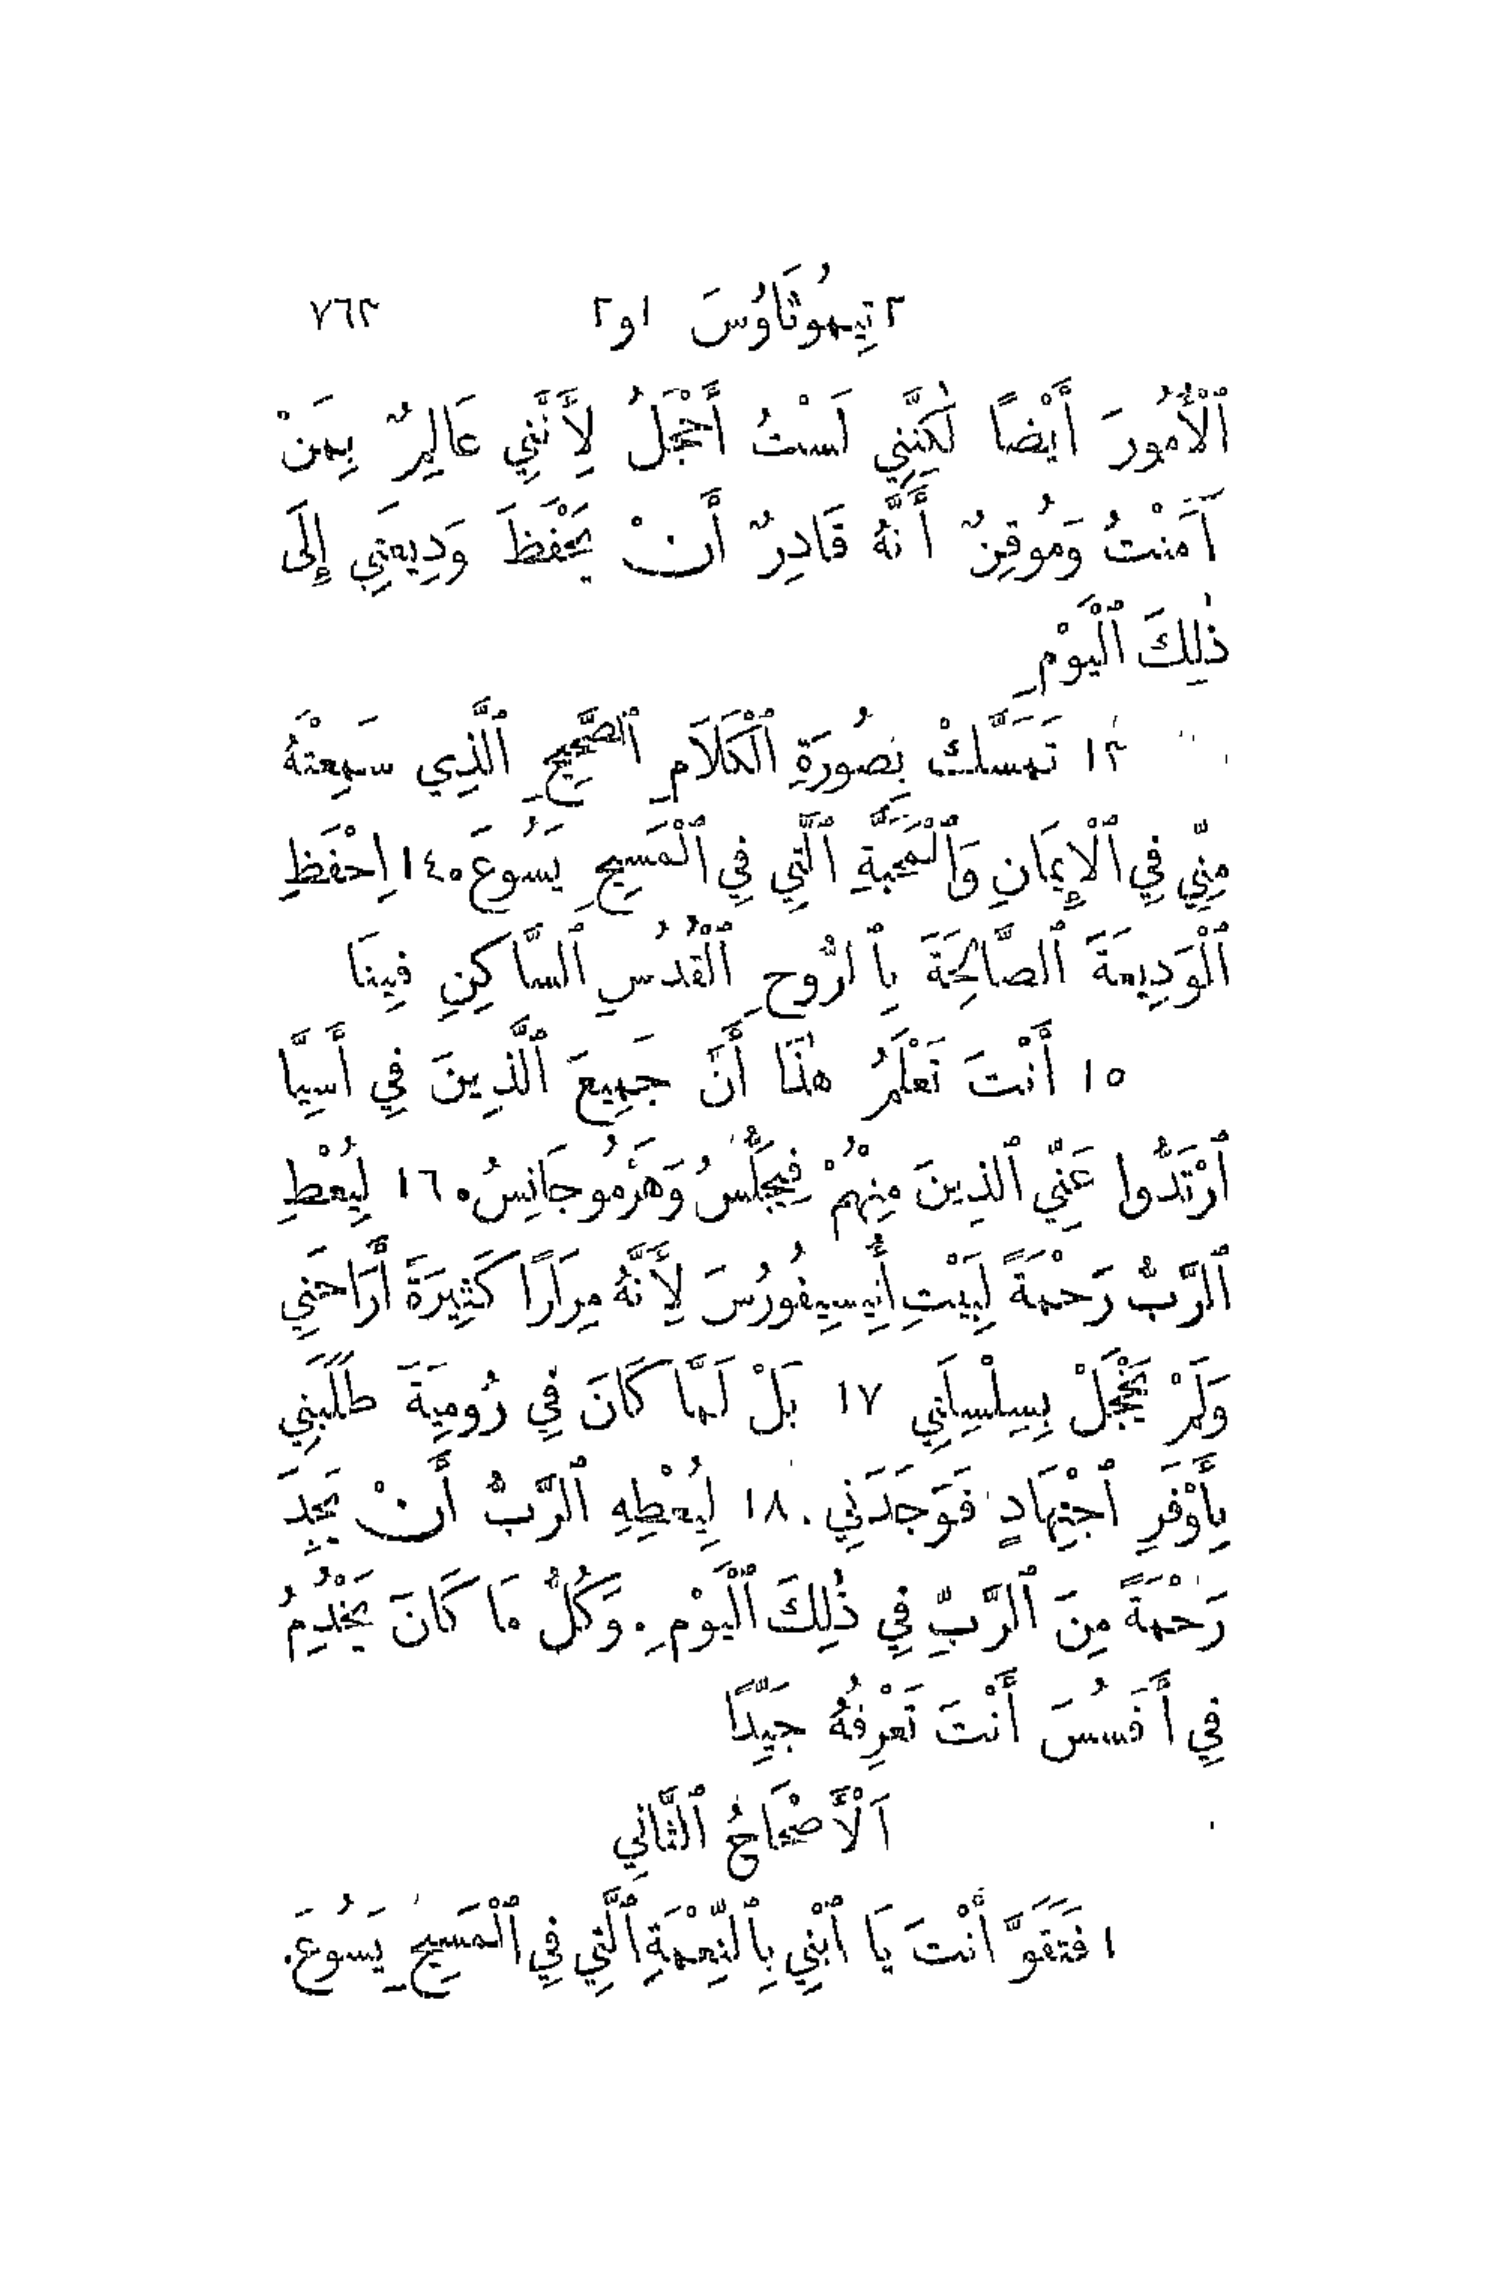 ٢ تِيمُوثَاوُسَ ١ و٢ ٧٦٣
ٱلْأُمُورَ أَيْضًا لٰكِنَّنِي لَسْتُ أَخْجَلُ لِأَنَّنِي عَالِمٌ بِمَنْ
آمَنْتُ وَمُوقِنٌ أَنَّهُ قَادِرٌ أَنْ يَحْفَظَ وَدِيعَتِي إِلَى
ذٰلِكَ ٱلْيَوْمِ
١٣ تَمَسَّكْ بِصُورَةِ ٱلْكَلَامِ ٱلصَّحِيحِ ٱلَّذِي سَمِعْتَهُ
مِنِّي فِي ٱلْإِيمَانِ وَٱلْمَحَبَّةِ ٱلَّتِي فِي ٱلْمَسِيحِ يَسُوعَ. ١٤ اِحْفَظِ
ٱلْوَدِيعَةَ ٱلصَّالِحَةَ بِٱلرُّوحِ ٱلْقُدُسِ ٱلسَّاكِنِ فِينَا
١٥ أَنْتَ تَعْلَمُ هٰذَا أَنَّ جَمِيعَ ٱلَّذِينَ فِي أَسِيَّا
ٱرْتَدُّوا عَنِّي ٱلَّذِينَ مِنْهُمْ فِيجَلُّسُ وَهَرْمُوجَانِسُ. ١٦ لِيُعْطِ
ٱلرَّبُّ رَحْمَةً لِبَيْتِ أُنِيسِيفُورُسَ لِأَنَّهُ مِرَارًا كَثِيرَةً أَرَاحَنِي
وَلَمْ يَخْجَلْ بِسِلْسِلَتِي ١٧ بَلْ لَمَّا كَانَ فِي رُومِيَةَ طَلَبَنِي
بِأَوْفَرِ ٱجْتِهَادٍ فَوَجَدَنِي. ١٨ لِيُعْطِهِ ٱلرَّبُّ أَنْ يَجِدَ
رَحْمَةً مِنَ ٱلرَّبِّ فِي ذٰلِكَ ٱلْيَوْمِ. وَكُلُّ مَا كَانَ يَخْدِمُ
فِي أَفَسُسَ أَنْتَ تَعْرِفُهُ جَيِّدًا
اَلْأَصْحَاحُ ٱلثَّانِي
١ فَتَقَوَّ أَنْتَ يَا ٱبْنِي بِٱلنِّعْمَةِ ٱلَّتِي فِي ٱلْمَسِيحِ يَسُوعَ.